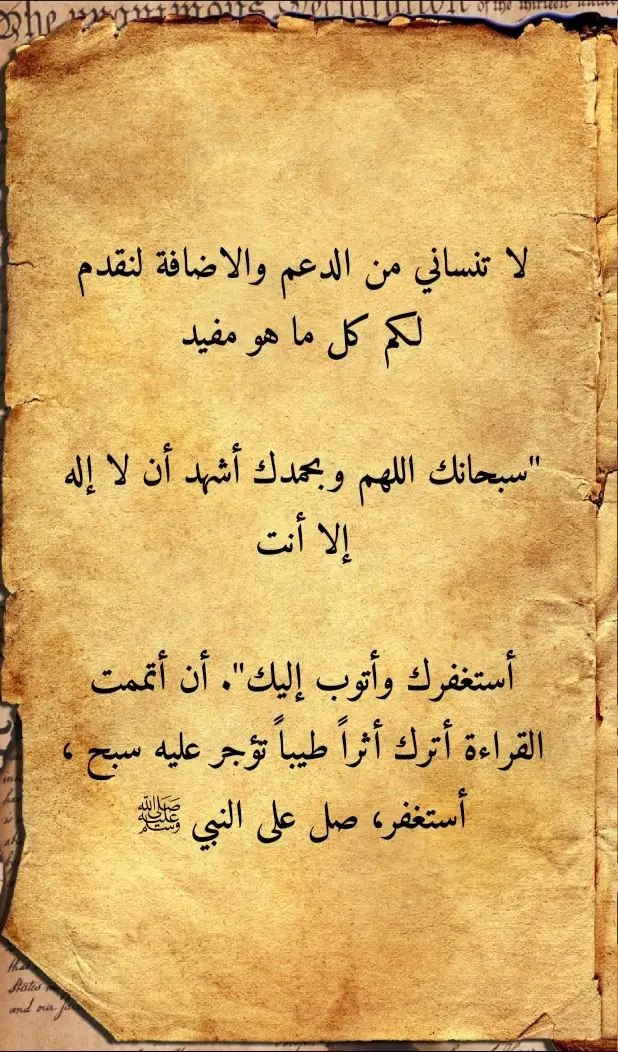 The unanimous Declaration of the thirteen united
لا تنساني من الدعم والاضافة لنقدم
لكم كل ما هو مفيد
"سبحانك اللهم وبحمدك أشهد أن لا إله
إلا أنت
أستغفرك وأتوب إليك". أن أتممت
القراءة أترك أثراً طيباً تؤجر عليه سبح ،
أستغفر، صل على النبي ﷺ
States
and our